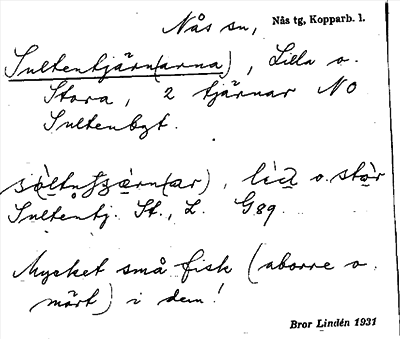 Nås sn, Nås tg, Kopparb. l.
Sultentjärn(arna), Lilla o.
Stora, 2 tjärnar NO
Sultenbgt.
lìcl o. stòr
Sultentj. St., L. G89.
Mycket små fisk (aborre o.
mört) i dem!
Bror Lindén 1931